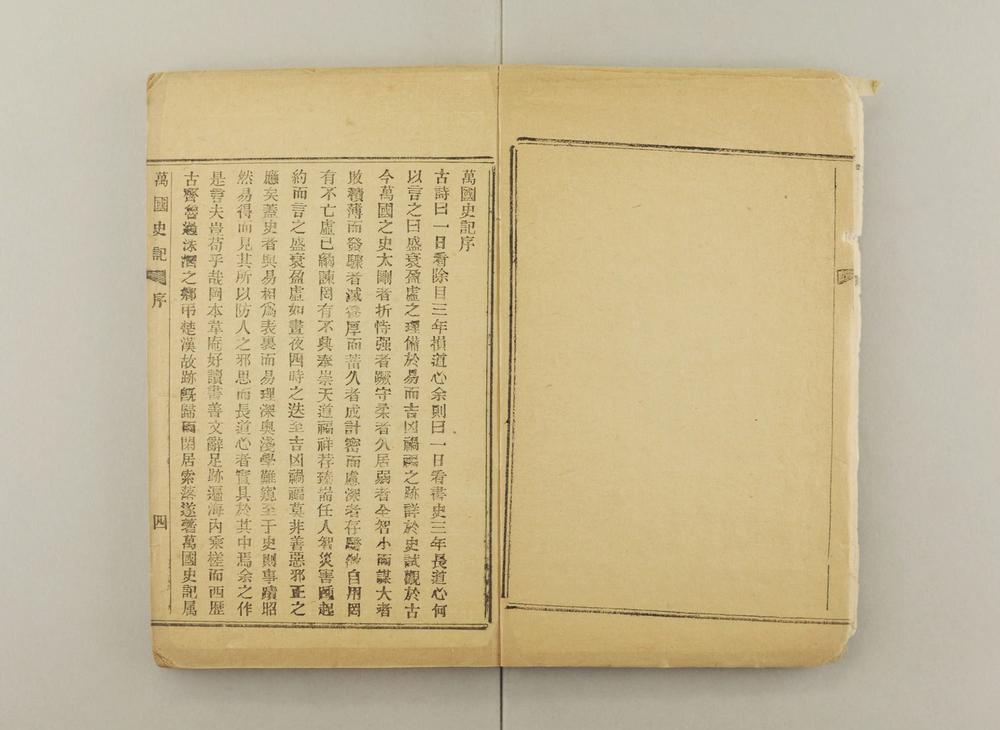 萬國史記序
古詩曰一日看除目三年損道心余則曰一日看書史三年長道心何
以言之曰盛衰盈虛之理備於易而吉凶禍福之跡詳於史試觀於古
今萬國之史太剛者折恃强者蹶守柔者久居弱者全智小而謀大者
敗積薄而發驟者滅養厚而蓄久者成計密而慮深者存驕傲自用罔
有不亡虛已納諫罔有不興奉崇天道福祥荐臻耑任人智災害踵起
約而言之盛衰盈虛如晝夜四時之迭至吉凶禍福莫非善惡邪正之
應矣蓋史者與易相爲表裏而易理深奥淺學難窺至于史則事蹟昭
然易得而見其所以防人之邪思而長道心者實具於其中焉余之作
是言夫豈苟乎哉岡本韋庵好讀書善文辭足跡遍海內乘槎而西歷
古齊魯過洙泗之鄉弔楚漢故跡既歸而閑居索落遂著萬國史記属
萬國史記 序 四